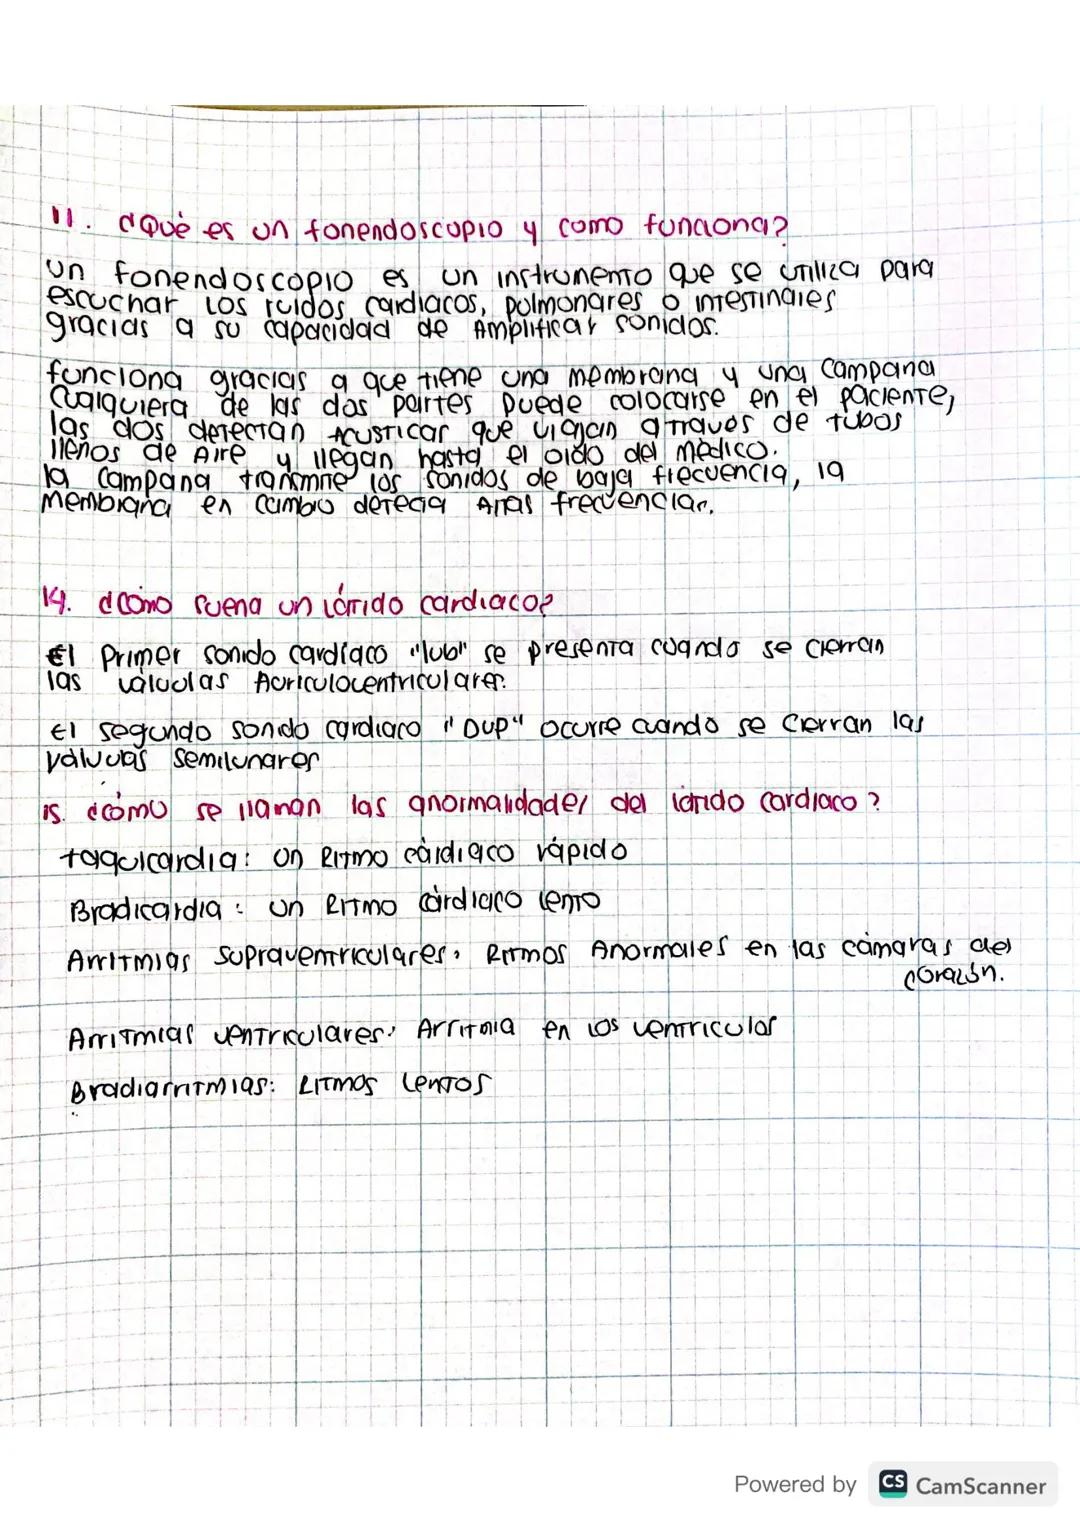 11. ¿Qué es un fonendoscopio y como funciona?
Un fonendoscopio es un instrumento que se utiliza para
escuchar los ruidos cardiacos, pulmonares o intestinales
gracias a su capacidad de Amplificar sonidos.
funciona gracias a que tiene una membrana y una campana
Cualquiera de las dos partes puede colocarse en el paciente,
las dos detectan Acusticas que viajan atraves de tubos
llenos de Aire y llegan hasta el oido del médico.
la campana transmite los sonidos de baja frecuencia, la
membrana en cambio detecta Altas frecuencias.
14. ¿Cómo suena un látido cardiaco?
El Primer sonido cardíaco "lub" se presenta cuando se cierran
las válvulas Auriculocentriculares.
El segundo sonido cardiaco "Dup" ocurre cuando se cierran las
válvulas semilunares
15. ¿cómo se llaman las anormalidades del látido cardiaco?
taquicardia: Un Ritmo cárdiaco rápido
Bradicardia: un Ritmo cárdiaco lento
Arritmias supraventriculares: Ritmos Anormales en las cámaras del
corazón.
Arritmias ventriculares: Arritmia en los ventriculos
Bradiarritmias: Ritmos Lentos
Powered by CS CamScanner